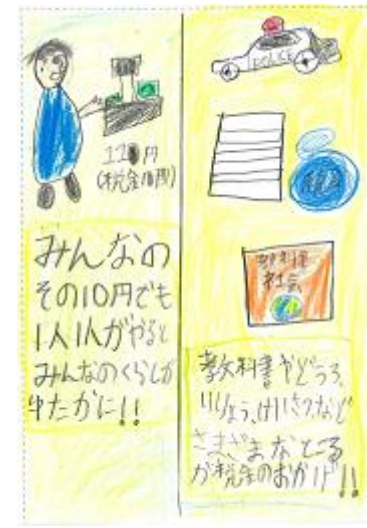 110円
(税金10円)
みんなの
その10円でも
1人1人がやると
みんなのくらしが
ゆたかに!!
POLICE
教科書
社会
教科書やどうろ、
いりょう、けいさつなど
さまざまなところ
が税金のおかげ!!